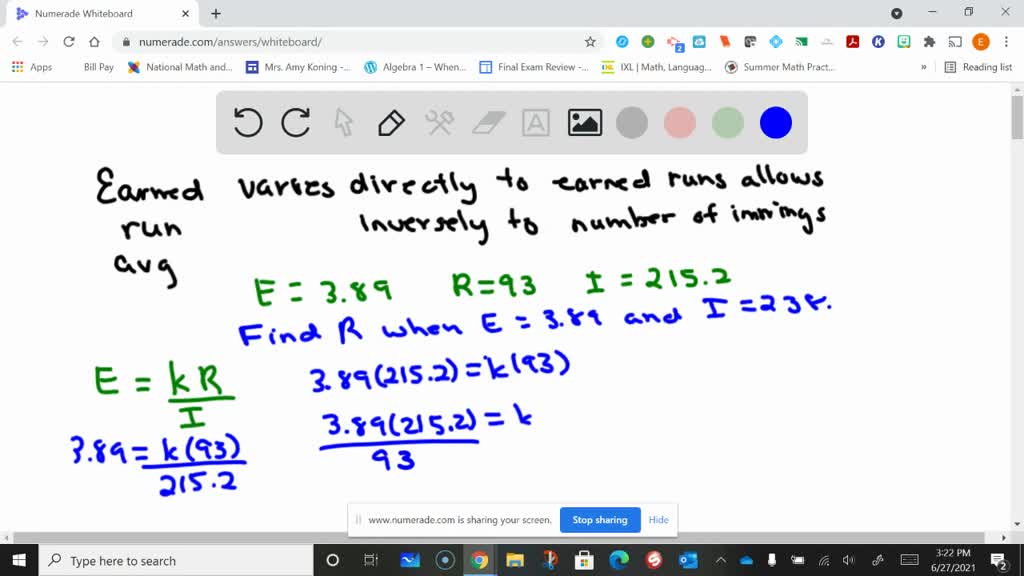 Numerade Whiteboard
numerade.com/answers/whiteboard/
E
Apps Bill Pay National Math and... Mrs. Amy Koning -... Algebra 1 – When... Final Exam Review -... IXL | Math, Languag... Summer Math Pract... » Reading list
A
Earned varies directly to earned runs allows
run inversely to number of innings
avg
E = 3.89 R = 93 I = 215.2
Find R when E = 3.89 and I = 238.
E = kR / I
3.89(215.2) = k(93)
3.89 = k(93) / 215.2
3.89(215.2) / 93 = k
www.numerade.com is sharing your screen. Stop sharing Hide
Type here to search
3:22 PM
6/27/2021
2